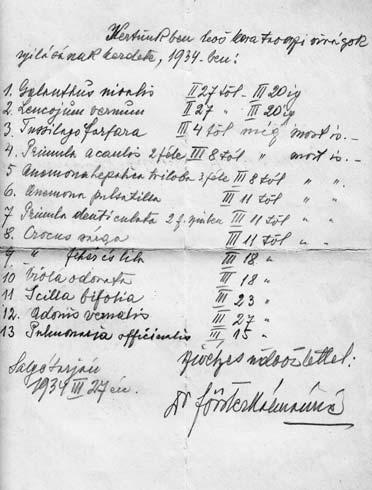 Kertünkben levő kora tavaszi virágok
nyilásának kezdete, 1934.-ben:
1. Galanthus nivalis II 27 től - III 20 ig
2. Leucojum vernum II 27 " III 20 ig
3. Tussilago farfara III 4 től még most is. -
4. Primula acaulis 2 féle III 8 tól " most is. -
5. Anemona hepatica triloba 3 féle III 8 tól " " .
6. Anemona pulsatilla III 11 től " "
7 Primula denticulata 2 III 11 től " "
8. Crocus sárga III 11 től " "
9. " fehér és lila III 18 "
10 Viola odorata III 18 "
11 Scilla bifolia III 23 "
12. Adonis vernalis III 27 "
13 Pulmonaria officinalis III 15 "
Szives üdvözlettel:
Salgótarján
1934 III 27 én.
Dr Förster Kálmánné